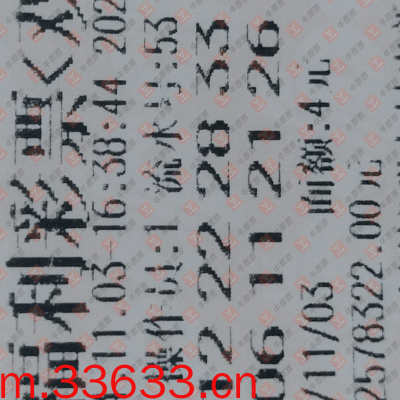 福利彩票<双
11.03-16:38:44 202
操作员:1 流水号:53
22 28 33
06 11 21 26
/11/03 面额:4元
2578322.00元
m.33633.cn